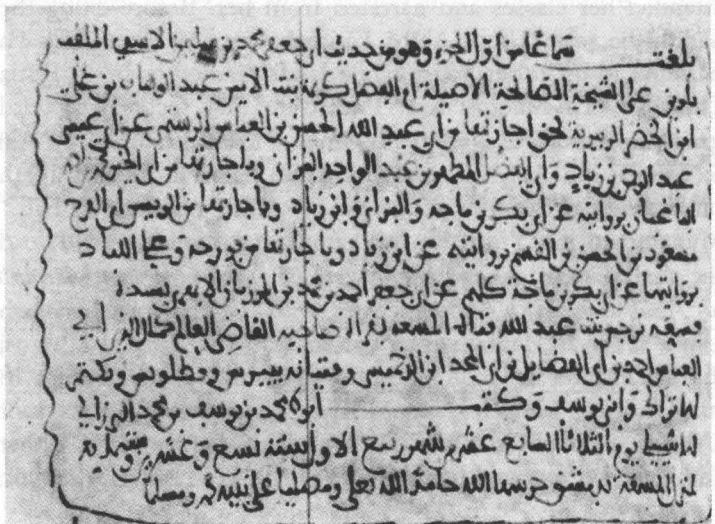 بلغت سماعا من اول الجزء وهو من حديث ابي جعفر محمد بن سليمن الاسدي الملقب
بلوين على الشيخة الصالحة الاصيلة ام الفضل كريمة بنت الامين عبد الوهاب بن علي
ابن الخضر الزبيرية بحق اجازتها من ابي عبد الله الحسن بن العباس الرستمي عن ابي عيسى
عبد الرحمن بن زياد وابي الفضل المطهر بن عبد الواحد البزاني وباجازتها من ابي الخير محمد
الباغبان بروايته عن ابي بكر بن ماجه والبزاني وابن زياد وباجازتها من الرييس ابي الفرج
مسعود بن الحسن بن القسم بروايته عن ابن زياد وباجازتها من
بروايتهما عن ابي بكر بن ماجة كلهم عن ابي جعفر احمد بن محمد بن المرزبان الابهري بسنده
فسمعه عبد الله فتاه المسمعة بقراة صاحبه القاضي العالم كمال الدين ابي
العباس احمد بن ابي الفضايل بن ابي المجد ابن الدخميسي وفتيانه بيبرس و
وابن يوسف وكتب ابو عبد الله محمد بن يوسف بن محمد البرزالي
الاشبيلي يوم الثلاثا السابع عشر من شهر ربيع الاول سنة تسع وعشرين وستماية
بمنزل المسمعة بدمشق حرسها الله حامدا لله تعلى ومصليا على نبيه محمد ومسلما